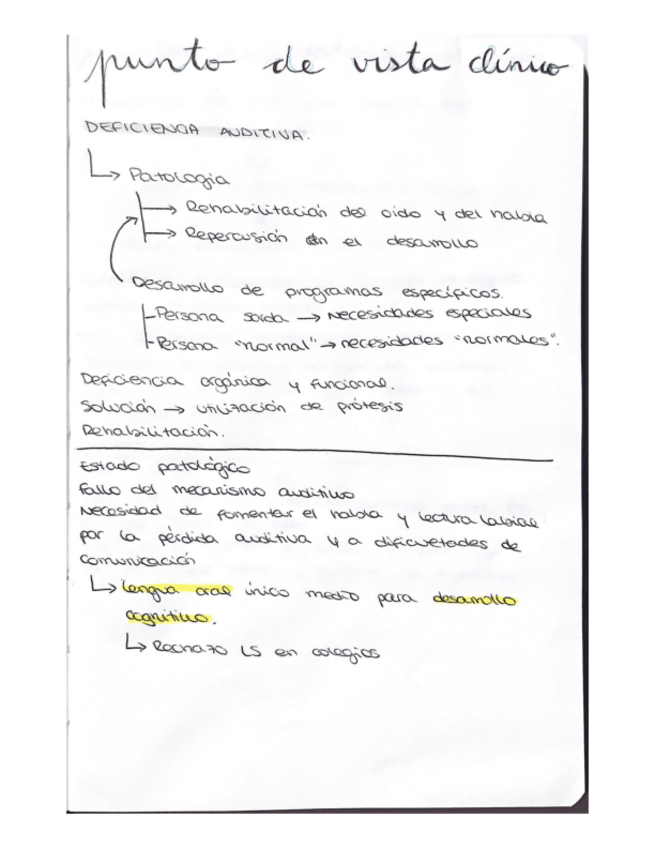 punto de vista clínico
DEFICIENCIA AUDITIVA.
↳ Patología
→ Rehabilitación del oido y del habla
→ Repercusión en el desarrollo
Desarrollo de programas específicos.
Persona sorda → Necesidades especiales
Persona "normal" → necesidades "normales".
Deficiencia orgánica y funcional.
Solución → utilización de prótesis
Rehabilitación.
Estado patológico
Fallo del mecanismo auditivo
Necesidad de fomentar el habla y lectura labial
por la pérdida auditiva y a dificultades de
comunicación
↳ Lengua oral único medio para desarrollo
cognitivo.
↳ Rechazo LS en colegios